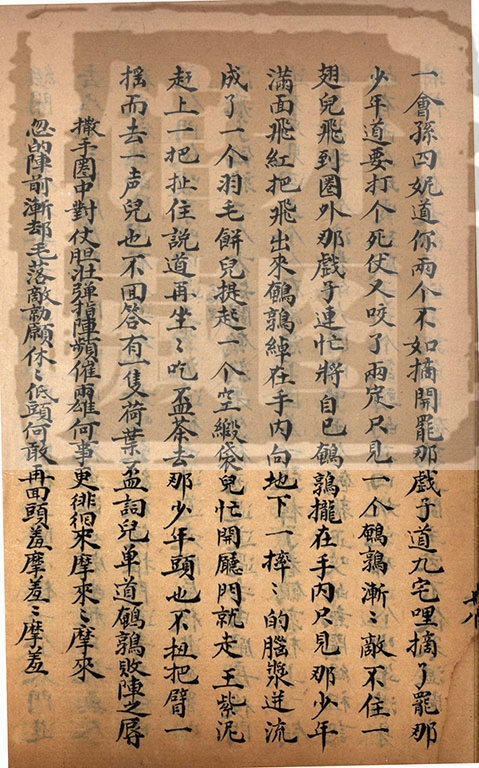 一會孫四妮道你兩个不如摘開罷那戲子道九宅哩摘了罷那
少年道要打个死仗又咬了兩定只見一个鵪鶉漸〻敵不住一
翅兒飛到圈外那戲子連忙將自己鵪鶉攏在手內只見那少年
滿面飛紅把飛出來鵪鶉綽在手內向地下一摔〻的腦漿迸流
成了一个羽毛餅兒提起一个空緞袋兒忙開廳門就走王紫泥
赶上一把扯住說道再坐〻吃盃茶去那少年頭也不扭把臂一
揺而去一声兒也不回答有一隻荷葉盃詞兒單道鵪鶉敗陣之辱
撒手圈中對仗胆壯弹指陣頻催兩雄何事更徘徊來摩來〻摩來
忽的陣前漸却毛落敵勍顧休〻低頭何敢再回頭羞摩羞〻摩羞